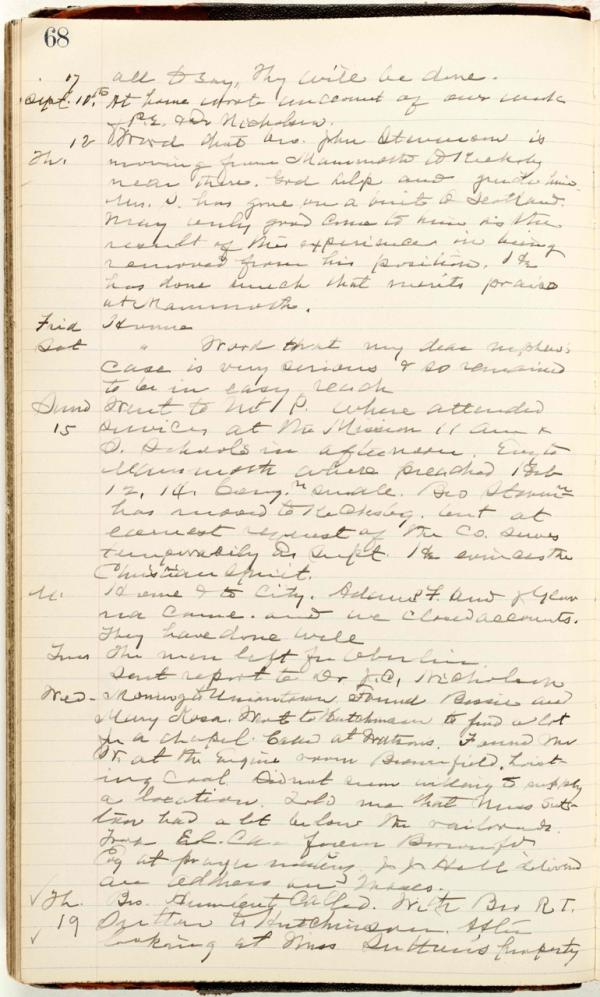 68
17 all to say, Thy will be done.
Sept. 10th At home wrote an account of our work
P.E. & Dr Nicholson.
Th. 12 Word that Bro. John Stevenson is
moving from Mammoth to
near there. God help and guide him.
Mrs. S. has gone on a visit to Scotland.
May only good come to him as the
result of this experience in being
removed from his position. He
has done much that merits praise
at Mammoth.
Frid Home
Sat " Word that my dear nephew's
case is very serious & so remained
to be in easy reach
Sund Went to Mt P. where attended
15 services at the Mission 11 am &
S. Schools in afternoon. Eve to
Mammoth where preached
12, 14. Cong.n small. Bro Steven
has moved to but at
earnest request of the Co. serves
temporarily as Supt. He evinces the
Christian Spirit.
M. Home & to City. Adams F. and
came and we closed accounts.
They have done well
Tues The men left for Oberlin.
Sent report to Dr J.C. Nicholson
Wed- Morning to Uniontown Found Bessie and
Mary Rosa. Went to Hutchinson to find a lot
for a chapel. Called at Watsons. Found Mr
W. at the Engine room Brownfield, hoist-
ing coal. Did not seem willing to supply
a location. Told me that Miss Sut-
ton had a lot below the railroad.
Took El. Car
Esq at prayer meeting J. J. Hall delivered
an address on Masses.
Th. Bro. called. With Bro R.T.
19 to Hutchinson. After
looking at Miss Sutton's property